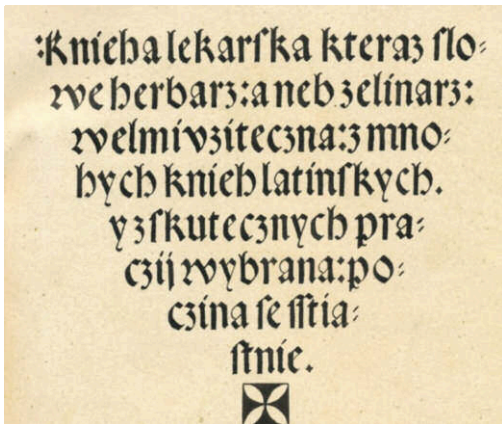 :Knieha lekarſka kteraz ſlo⸗
we herbarz: a neb zelinarz:
welmi vziteczna: z mno⸗
hych knieh latinſkych.
y z ſkutecznych pra⸗
czij wybrana: po⸗
czina ſe ſſtia⸗
ſtnie.